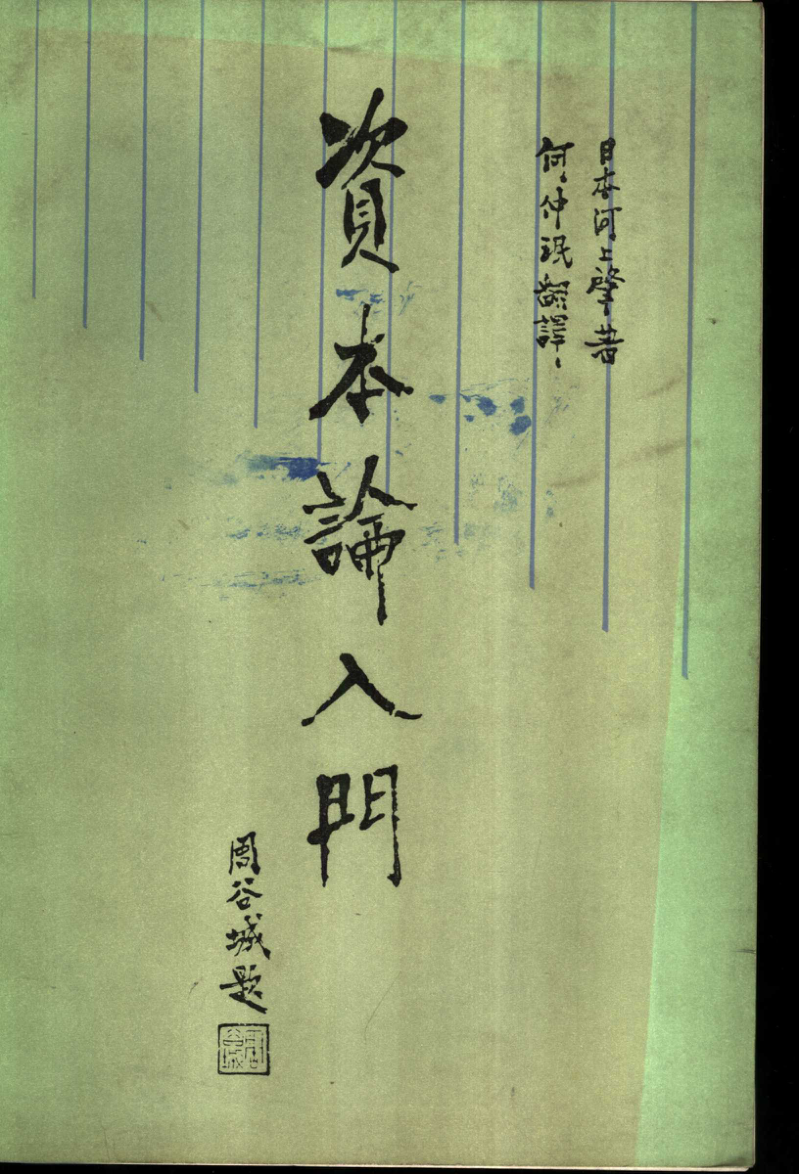 日本河上肇著
何仲珉翻譯
資本論入門
周谷城題